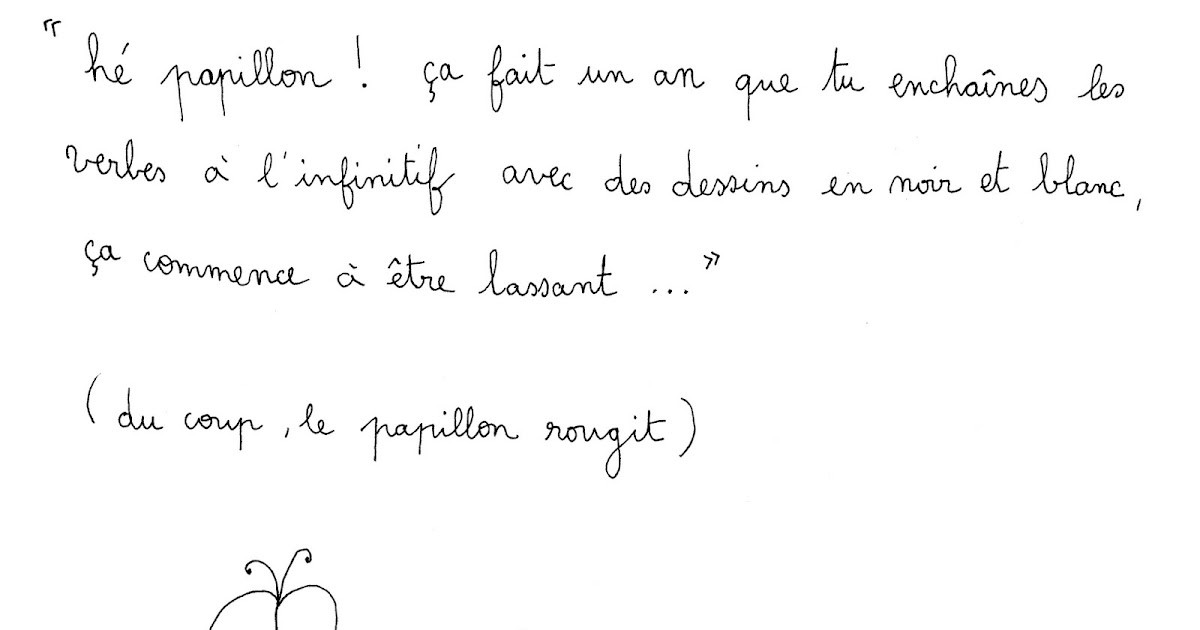 « hé papillon ! ça fait un an que tu enchaînes les
verbes à l'infinitif avec des dessins en noir et blanc,
ça commence à être lassant ... »
(du coup, le papillon rougit)